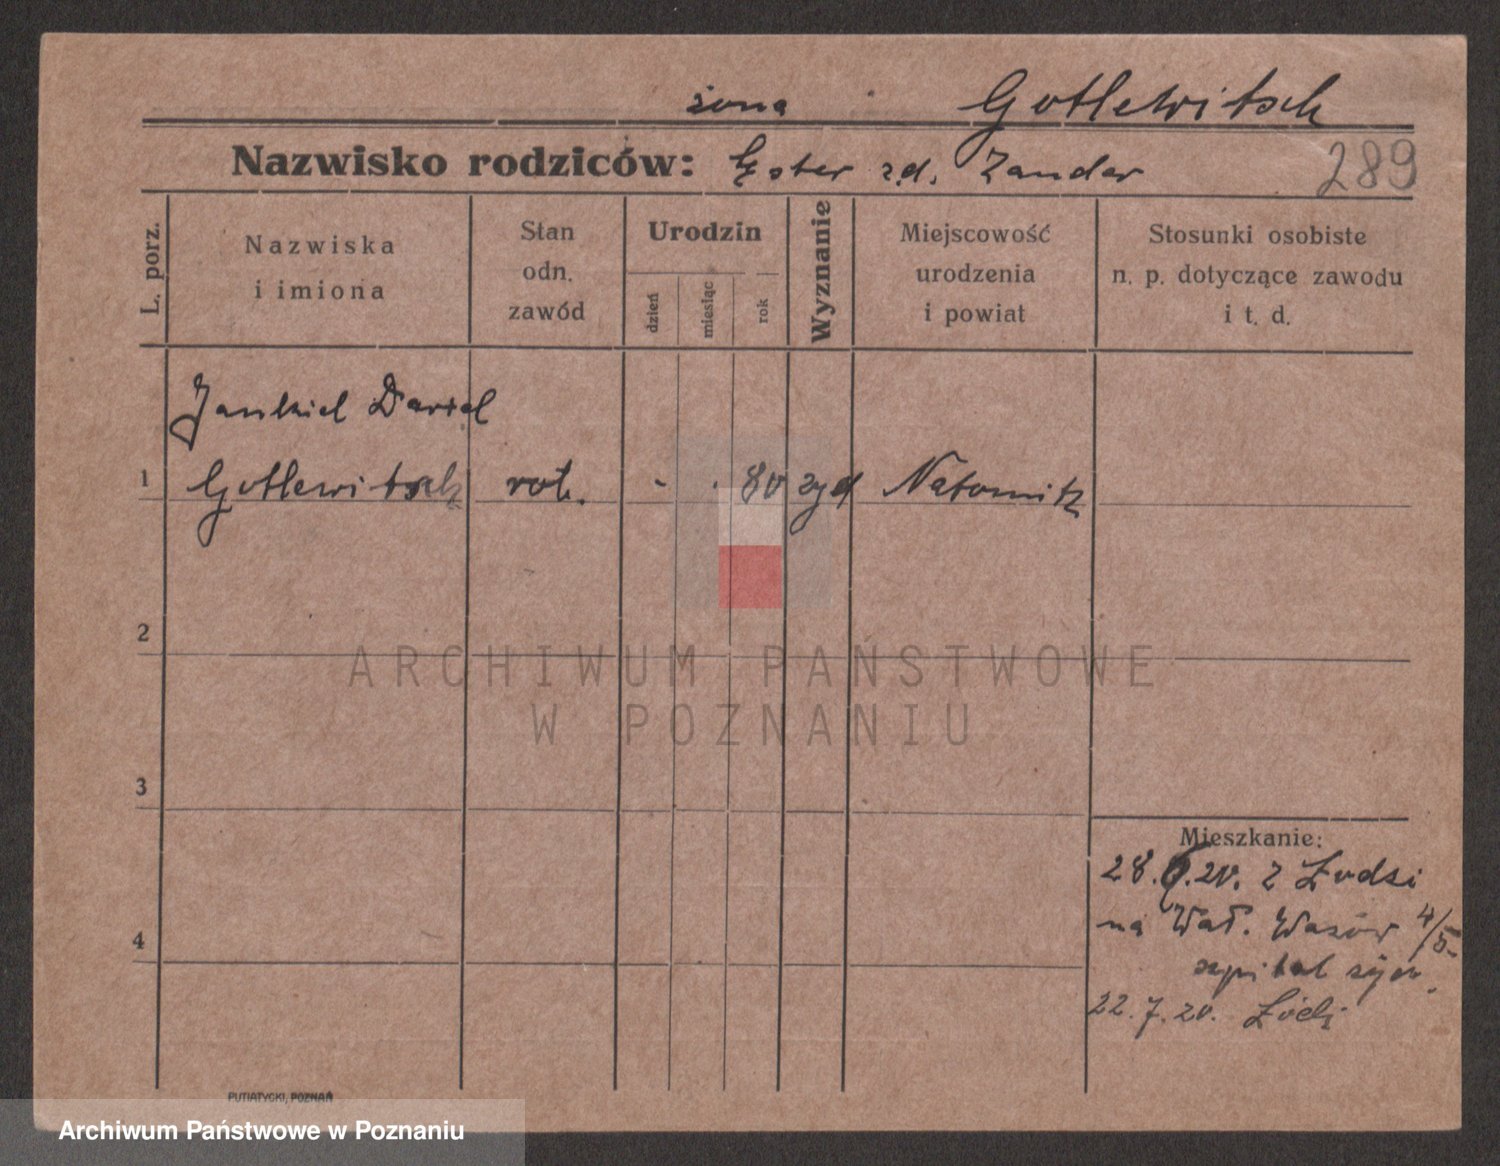 żona Gotlewitsch
Nazwisko rodziców: Ester zd. Zandar
289
L. porz.
Nazwiska
i imiona
Stan
odn.
zawód
Urodzin
dzień
miesiąc
rok
Wyznanie
Miejscowość
urodzenia
i powiat
Stosunki osobiste
n. p. dotyczące zawodu
i t. d.
Jankiel David
1 Gotlewitsch rob. - . 80 żyd
2
3
4
ARCHIWUM PAŃSTWOWE
W POZNANIU
Mieszkanie:
28.6.20. z Łodzi
na Wał. Wazów 4/5.
szpital żyd.
22.7.20. Łódź
PUTIATYCKI, POZNAŃ
Archiwum Państwowe w Poznaniu